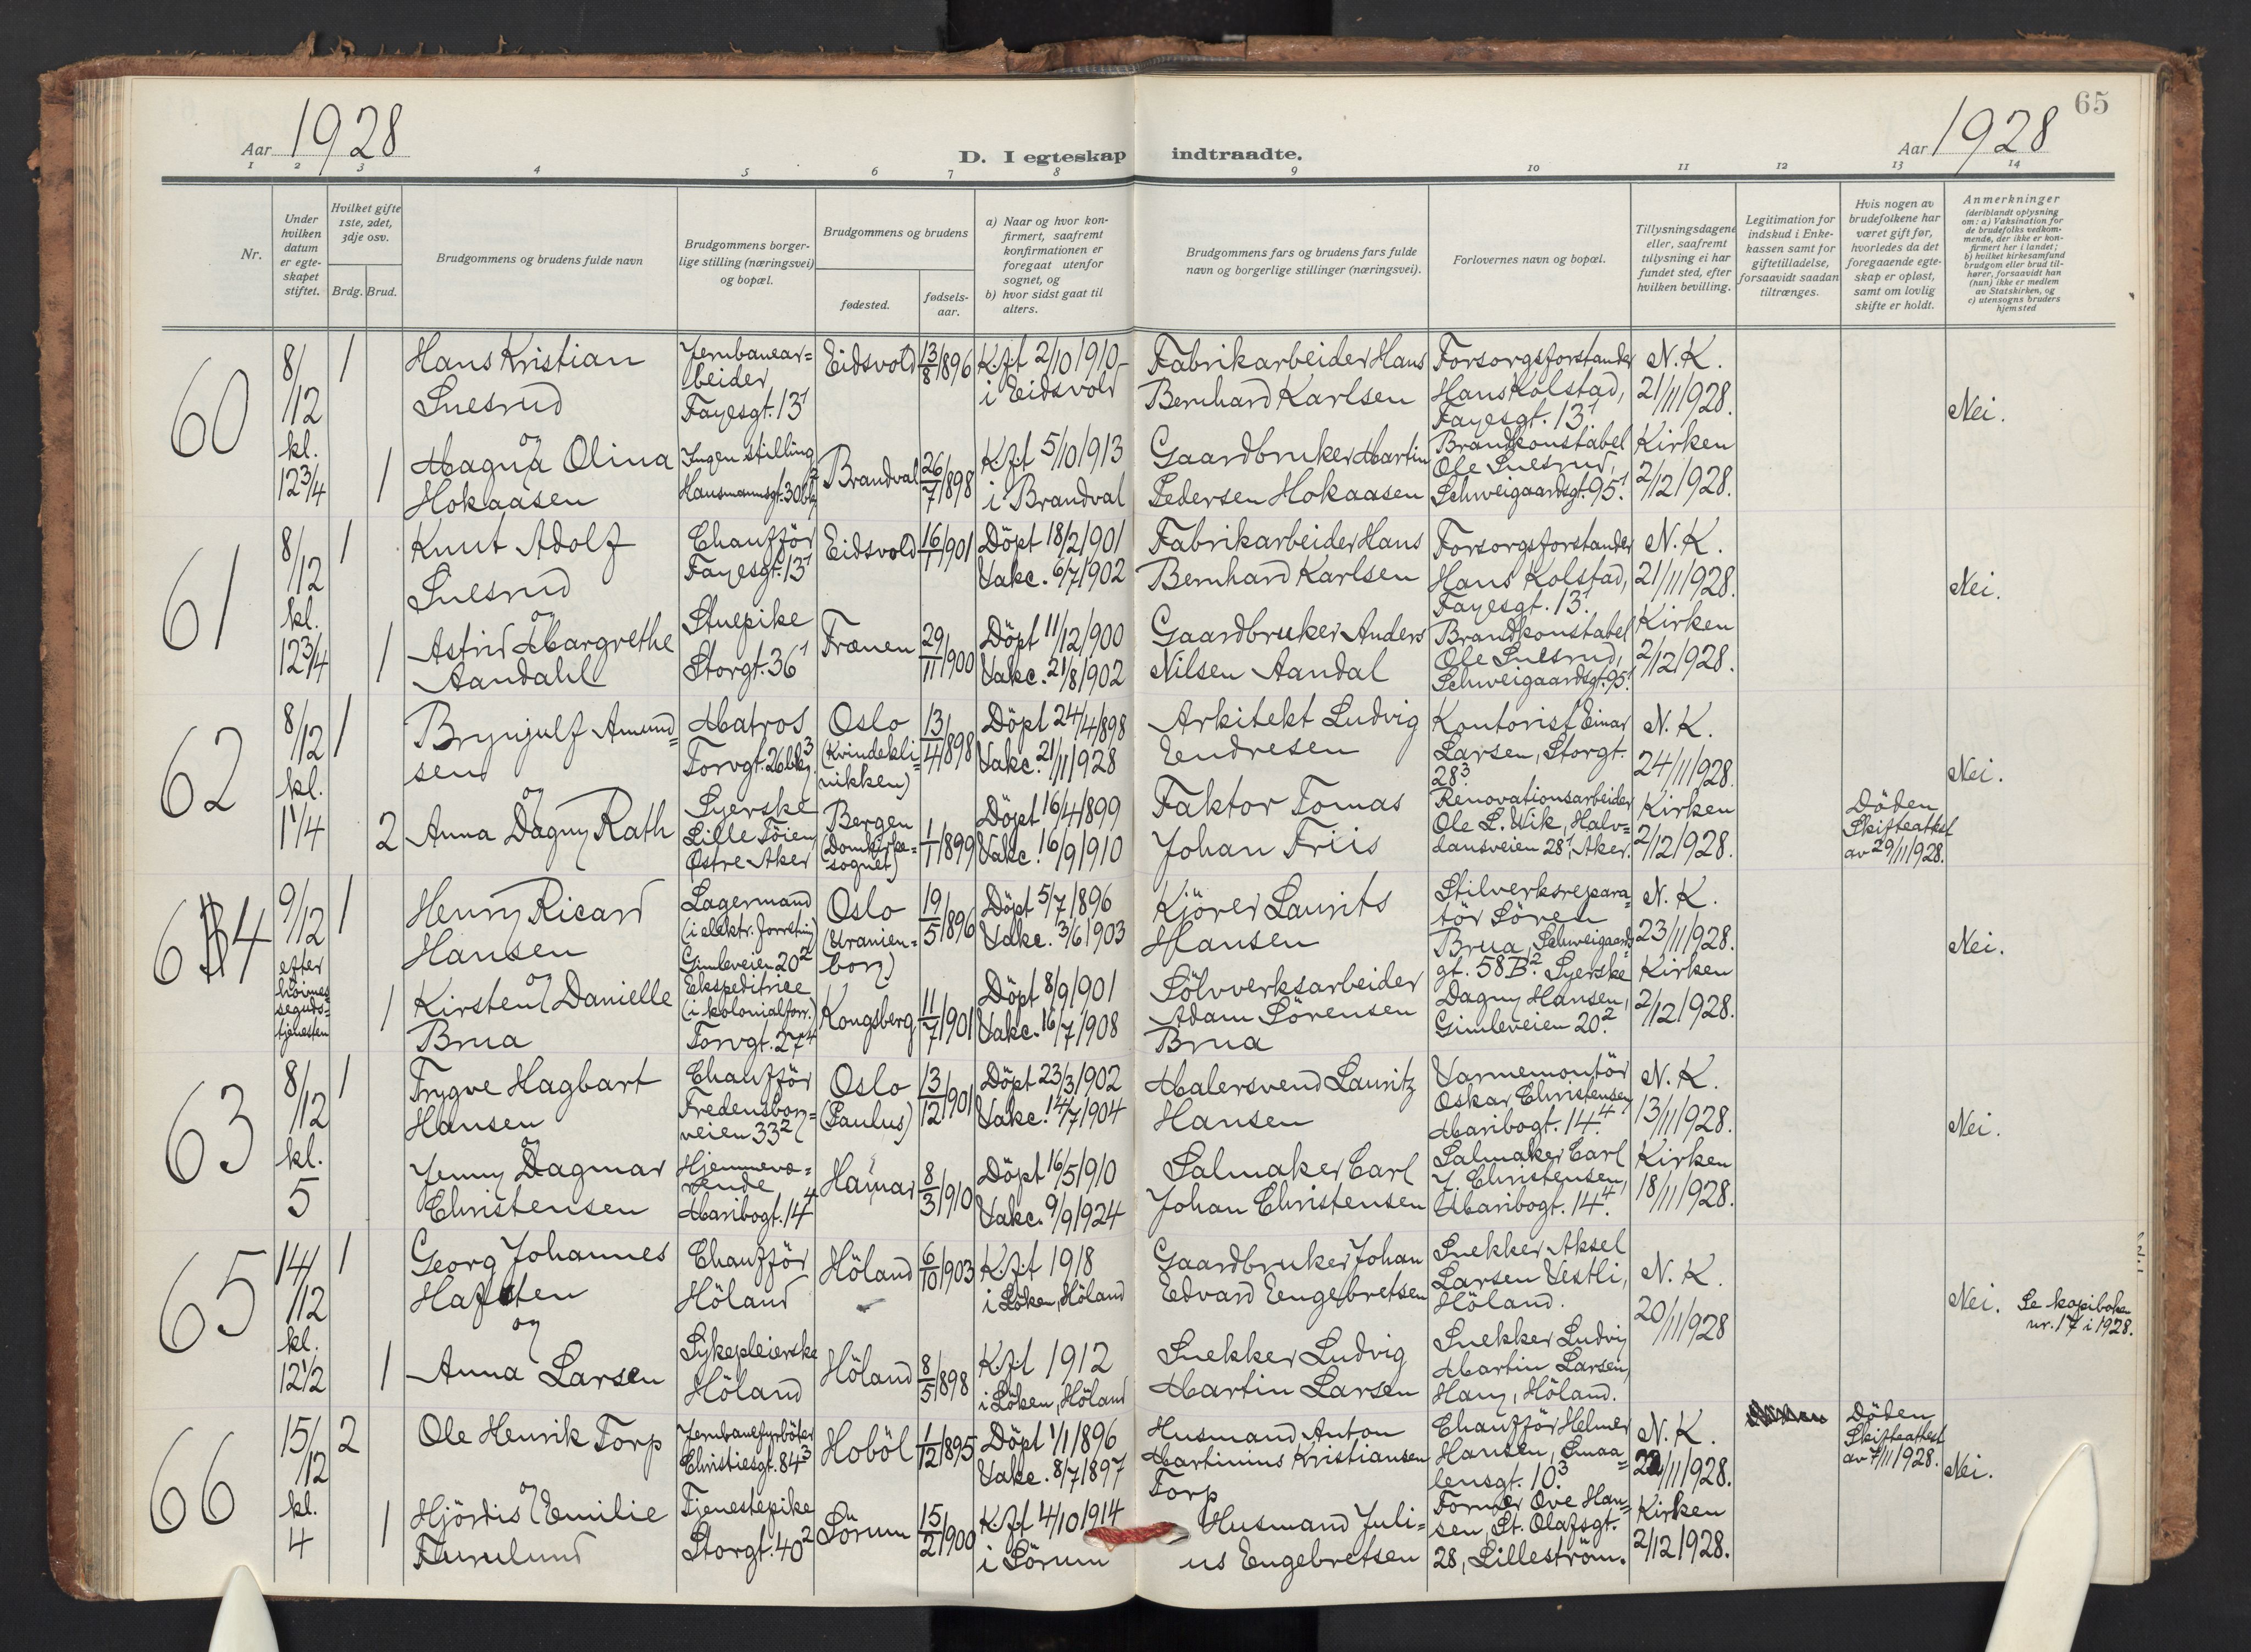 65
Aar 1928
D. I egteskap indtraadte.
Aar 1928
1 2 3 4 5 6 7 8 9 10 11 12 13 14
Nr.
Under hvilken datum er egteskapet stiftet.
Hvilket gifte 1ste, 2det, 3dje osv.
Brdg. Brud.
Brudgommens og brudens fulde navn
Brudgommens borgerlige stilling (næringsvei) og bopæl.
Brudgommens og brudens
fødested.
fødselsaar.
a) Naar og hvor konfirmert, saafremt konfirmationen er foregaat utenfor sognet, og
b) hvor sidst gaat til alters.
Brudgommens fars og brudens fars fulde
navn og borgerlige stillinger (næringsvei).
Forlovernes navn og bopæl.
Tillysningsdagene eller, saafremt tillysning ei har fundet sted, efter hvilken bevilling.
Legitimation for indskud i Enkekassen samt for giftetilladelse, forsaavidt saadan tiltrænges.
Hvis nogen av brudefolkene har været gift før, hvorledes da det foregaaende egteskap er opløst, samt om lovlig skifte er holdt.
Anmerkninger
(deriblandt oplysning om: a) Vaksination for de brudefolks vedkommende, der ikke er konfirmert her i landet; b) hvilket kirkesamfund brudgom eller brud tilhører, forsaavidt han (hun) ikke er medlem av Statskirken, og c) utensogns bruders hjemsted
60
8/12 kl. 12 3/4
1
Hans Kristian
Snesrud
Jernbanear=
beider
Fayesgt. 13¹
Eidsvold
13/8 1896
Kft 2/10 1910
i Eidsvold
Fabrikarbeider Hans
Bernhard Karlsen
Forsorgsforstander
Hans Kolstad,
Fayesgt. 13¹
N.K.
21/11 1928.
Nei.
og
1
Magna Olina
Hokaasen
Ingen stilling
Hausmannsgt. 30
Brandval
26/7 1898
Kft 5/10 1913
i Brandval
Gaardbruker Martin
Pedersen Hokaasen
Brandkonstabel
Ole Snesrud,
Schweigaardsgt. 95¹.
Kirken
2/12 1928.
61
8/12 kl. 12 3/4
1
Knut Adolf
Snesrud
Chaufför
Fayesgt. 13¹
Eidsvold
16/1 1901
Döpt 18/2 1901
Vakc. 6/7 1902
Fabrikarbeider Hans
Bernhard Karlsen
Forsorgsforstander
Hans Kolstad,
Fayesgt. 13¹.
N.K.
21/11 1928.
Nei.
og
1
Astrid Margrethe
Aandahl
Stuepike
Storgt. 36¹
Frænen
29/11 1900
Döpt 11/12 1900
Vakc. 21/8 1902
Gaardbruker Anders
Nilsen Aandal
Brandkonstabel
Ole Snesrud,
Schweigaardsgt. 95¹.
Kirken
2/12 1928.
62
8/12 kl. 1 1/4
1
Brynjulf Amund=
sen
Matros
Torvgt. 26 bkg.³
Oslo
(Kvindekli=
nikken)
13/4 1898
Döpt 24/4 1898
Vakc. 21/11 1928
Arkitekt Ludvig
Endresen
Kontorist Einar
Larsen, Storgt.
28³.
N.K.
24/11 1928.
Nei.
og
2
Anna Dagny Rath
Syerske
Lille Töien,
Østre Aker
Bergen
(Domkirke=
sognet)
1/1 1899
Döpt 16/4 1899
Vakc. 16/9 1910
Faktor Tomas
Johan Friis
Renovationsarbeider
Ole L. Wik, Halv=
dansveien 28¹, Aker.
Kirken
2/12 1928.
Döden
Skifteattest
av 29/11 1928.
64
9/12 efter
höimes=
seguds=
tjenesten
1
Henry Ricard
Hansen
Lagermand
(i elektr. forretning)
Gimleveien 20²
Oslo
(Uranien=
borg)
19/5 1896
Döpt 5/7 1896
Vakc. 3/6 1903
Kjörer Laurits
Hansen
Stilverksrepara=
tör Sören
Brua, Schweigaards=
gt. 58B². Syerske
Dagny Hansen,
Gimleveien 20².
N.K.
23/11 1928.
Kirken
2/12 1928.
Nei.
og
1
Kirsten Danielle
Brua
Ekspeditrice
(i kolonialforr.)
Torvgt. 27⁴
Kongsberg
11/7 1901
Döpt 8/9 1901
Vakc. 16/7 1908
Sölvverksarbeider
Adam Sörensen
Brua
63
8/12 kl. 5
1
Trygve Hagbart
Hansen
Chaufför
Fredensborg=
veien 33²
Oslo
(Paulus)
13/12 1901
Döpt 23/3 1902
Vakc. 14/7 1904
Malersvend Lauritz
Hansen
Varmemontör
Oskar Christensen
Maribogt. 14⁴.
N.K.
13/11 1928.
Nei.
og
Jenny Dagmar
Christensen
Hjemmevæ=
rende
Maribogt. 14⁴
Hamar
8/3 1910
Döpt 16/5 1910
Vakc. 9/9 1924
Salmaker Carl
Johan Christensen
Salmaker Carl
J. Christensen,
Maribogt. 14⁴.
Kirken
18/11 1928.
65
14/12 kl. 12 1/2
1
Georg Johannes
Hafsten
Chaufför
Höland
Höland
6/10 1903
Kft 1918
i Löken, Höland
Gaardbruker Johan
Edvard Engebretsen
Snekker Aksel
Larsen Vestli,
Höland.
N.K.
20/11 1928
Nei. Se kopiboken
nr. 17 i 1928.
og
1
Anna Larsen
Sykepleierske
Höland
Höland
8/5 1898
Kft 1912
i Löken, Höland
Snekker Ludvig
Martin Larsen
Snekker Ludvig
Martin Larsen,
Höland.
66
15/12 kl. 4
2
Ole Henrik Torp
Jernbanefyrböter
Christiesgt. 84³
Hoböl
1/12 1895
Döpt 1/1 1896
Vakc. 8/7 1897
Husmand Anton
Martinius Kristiansen
Torp
Chaufför Helmer
Hansen, Smaa=
lensgt. 10³.
N.K.
22/11 1928.
Döden
Skifteattest
av 7/11 1928.
Nei.
og
1
Hjördis Emilie
Furulund
Tjenestepike
Storgt. 40²
Sörum
15/2 1900
Kft 4/10 1914
i Sörum
Husmand Juli=
us Engebretsen
Former Ove Han=
sen, St. Olafsgt.
28, Lilleström.
Kirken
2/12 1928.